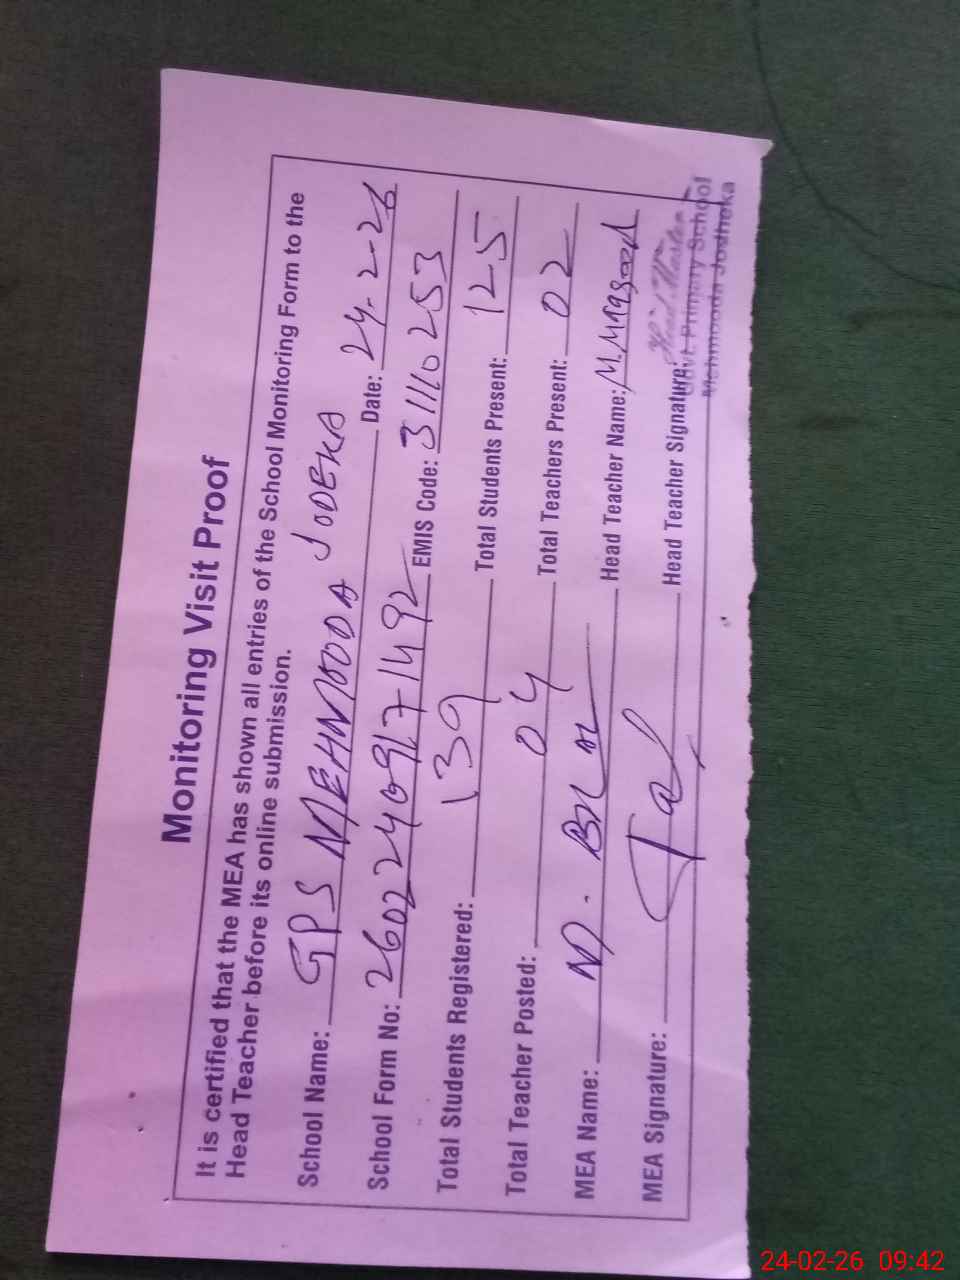 Monitoring Visit Proof
It is certified that the MEA has shown all entries of the School Monitoring Form to the
Head Teacher before its online submission.
School Name: GPS MEHMOODA JODEKA
School Form No: Date: 24-2-26
EMIS Code: 31110253
Total Students Registered: 139 Total Students Present: 125
Total Teacher Posted: 04 Total Teachers Present: 02
MEA Name: Head Teacher Name: M. Maqsood
MEA Signature: Head Teacher Signature:
Head Master
Govt. Primary School
Mehmooda Jodheka
24-02-26 09:42